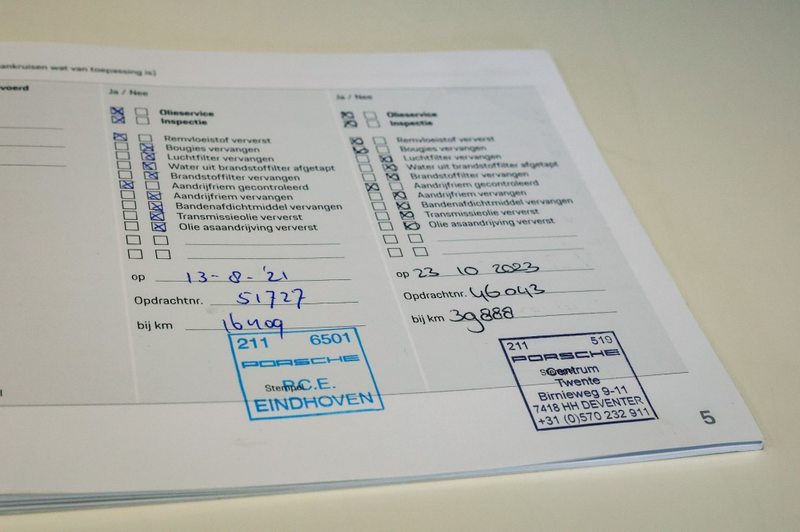 ankruisen wat van toepassing is)
voerd
Ja / Nee
Olieservice
Inspectie
Remvloeistof ververst
Bougies vervangen
Luchtfilter vervangen
Water uit brandstoffilter afgetapt
Brandstoffilter vervangen
Aandrijfriem gecontroleerd
Aandrijfriem vervangen
Bandenafdichtmiddel vervangen
Transmissieolie ververst
Olie asaandrijving ververst
op 13-8-'21
Opdrachtnr. 51727
bij km 16409
211 6501
PORSCHE
Stempel
P.C.E.
EINDHOVEN
Ja / Nee
Olieservice
Inspectie
Remvloeistof ververst
Bougies vervangen
Luchtfilter vervangen
Water uit brandstoffilter afgetapt
Brandstoffilter vervangen
Aandrijfriem gecontroleerd
Aandrijfriem vervangen
Bandenafdichtmiddel vervangen
Transmissieolie ververst
Olie asaandrijving ververst
op 23 10 2023
Opdrachtnr. 46043
bij km 39888
211 519
PORSCHE
Centrum
Twente
Birnieweg 9-11
7418 HH DEVENTER
+31 (0)570 232 911
5